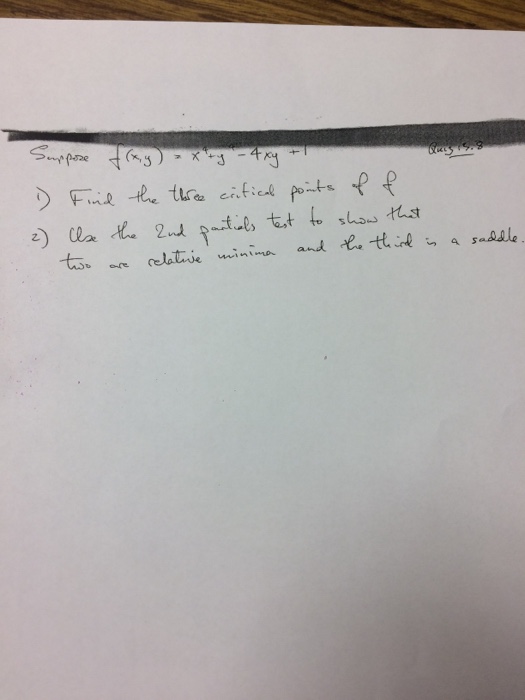 Suppose f(x,y) = x⁴+y⁴-4xy +1
Quiz 15.8
1) Find the three critical points of f
2) Use the 2nd partials test to show that
two are relative minima and the third is a saddle.